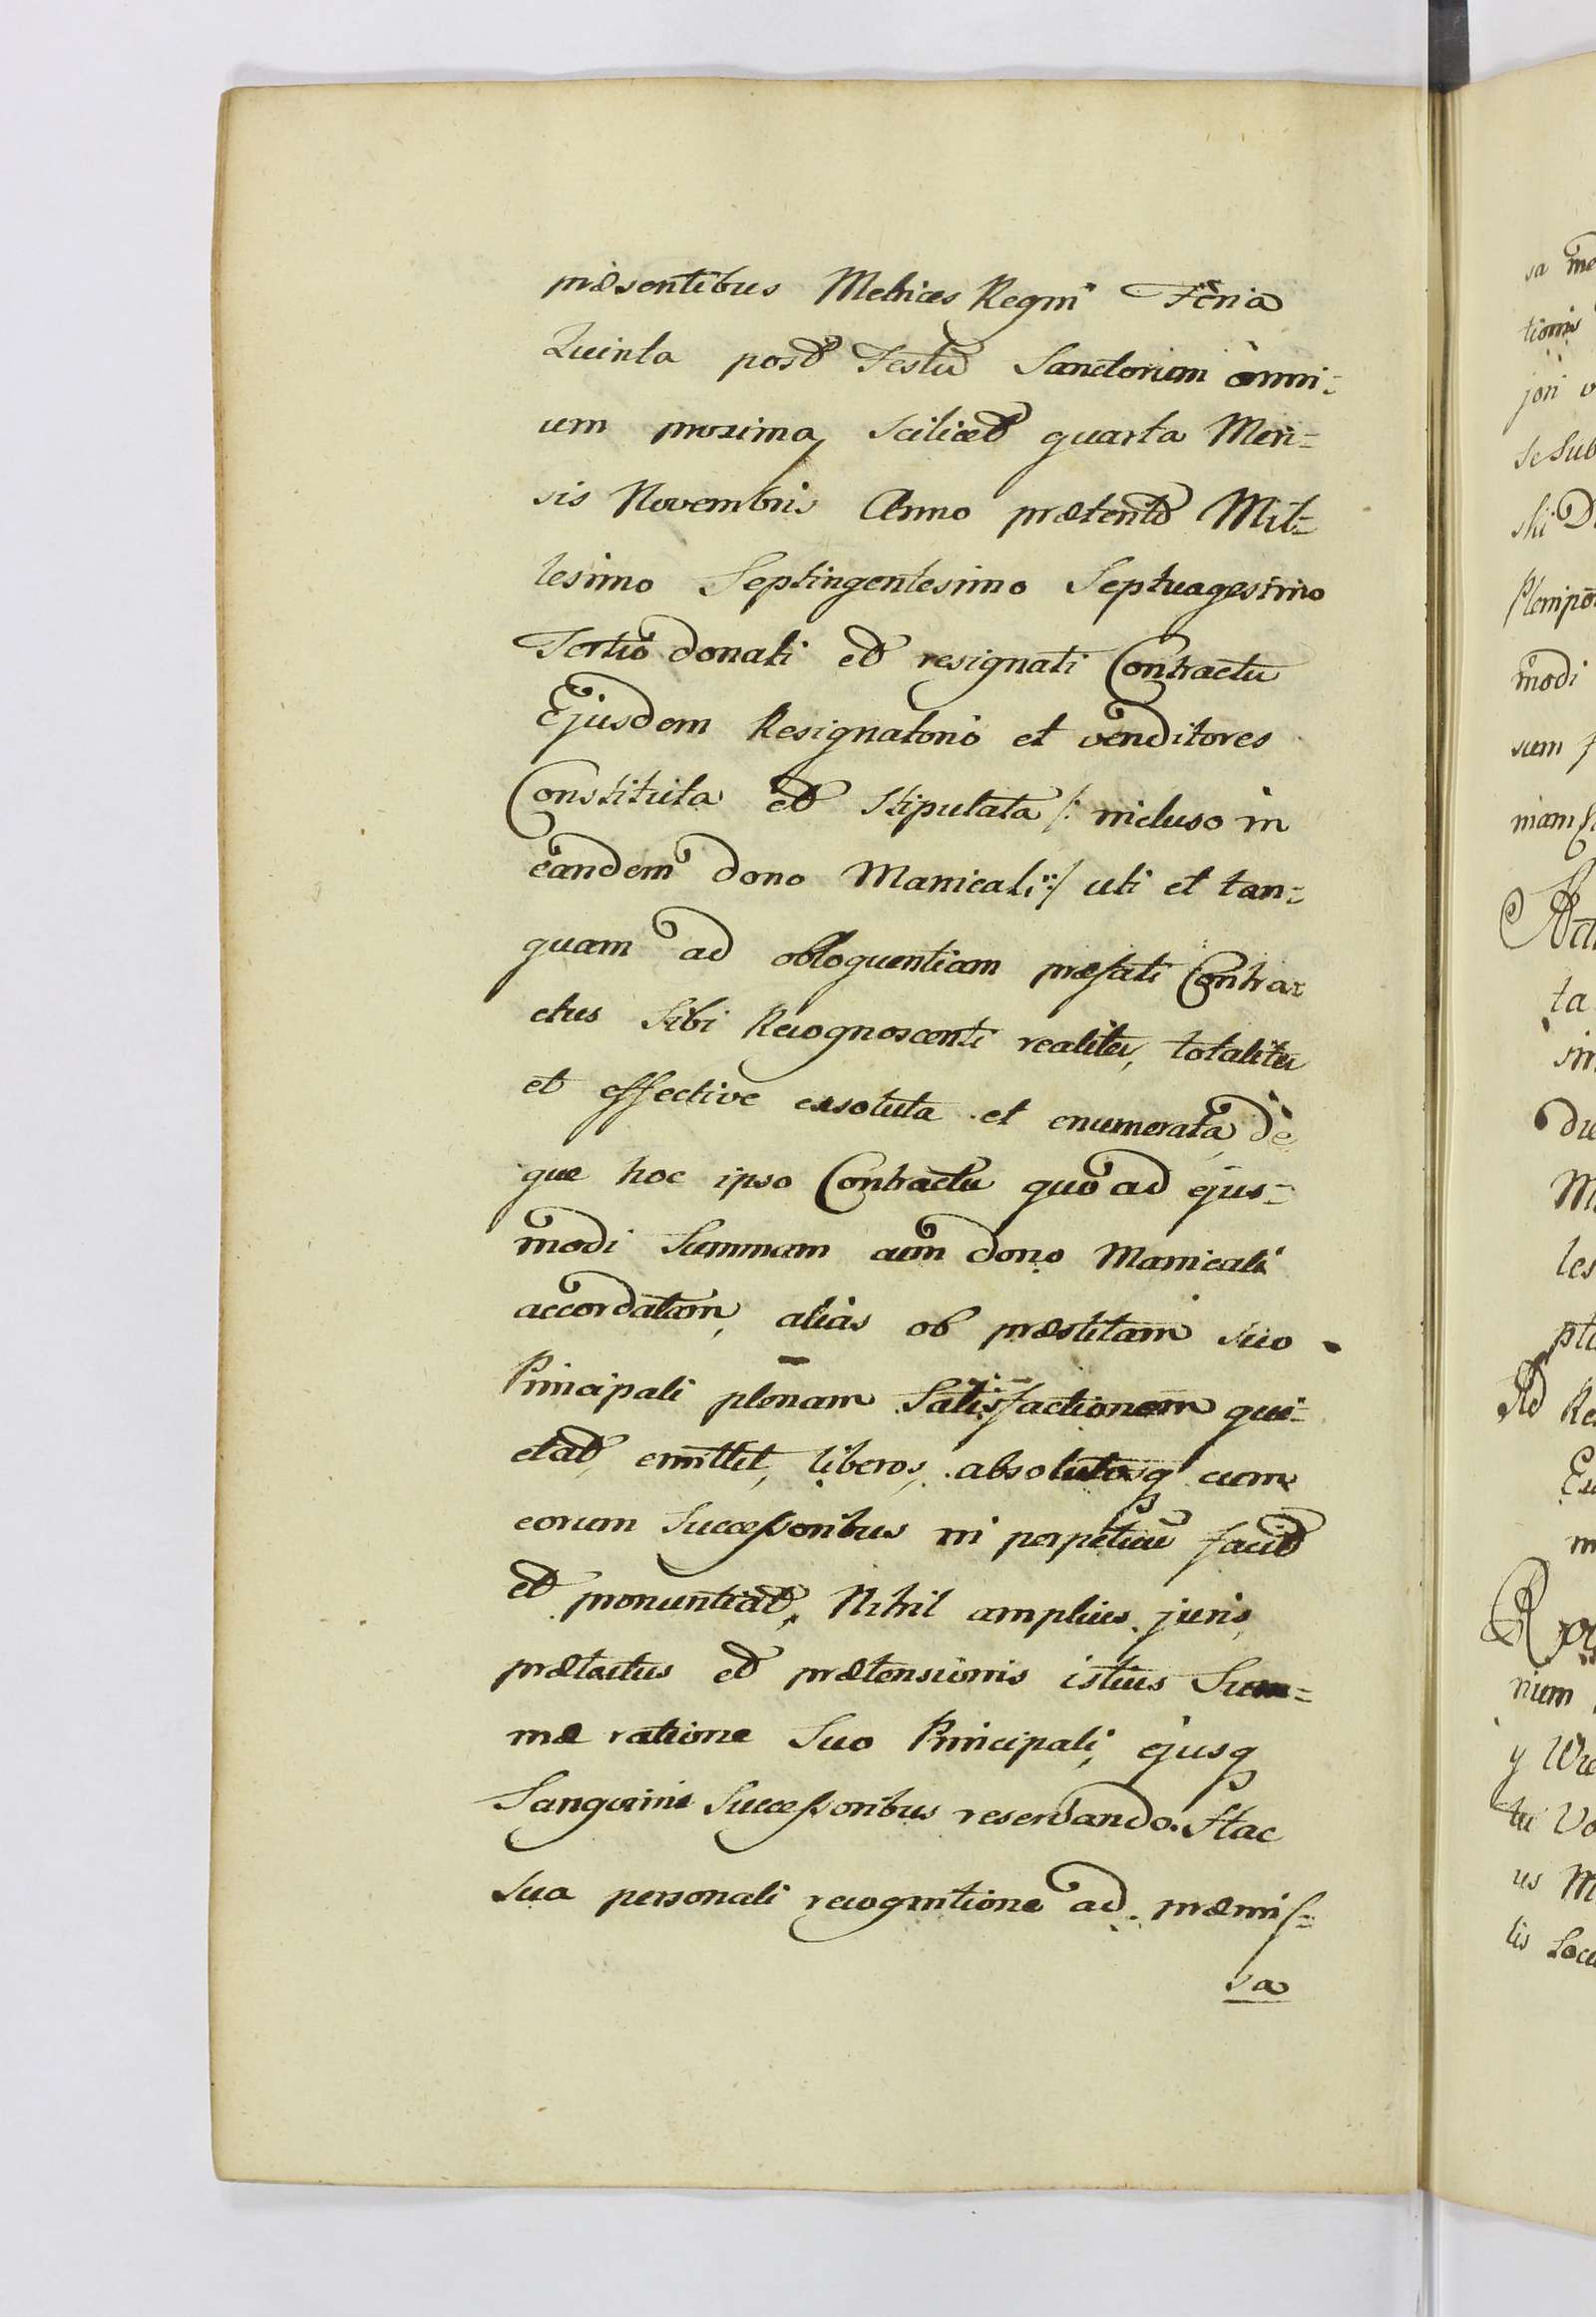 præsentibus Metrices Regni Feria
Quinta post Festū Sanctorum omni=
um proxima, scilicet quarta Men=
sis Novembris Anno præterito Mil=
lesimo Septingentesimo Septuagesimo
Tertio donati et resignati Contractū
Ejusdem Resignatorio et venditores
Constituta et Stipulata /: incluso in
eandem dono Manicali :/ uti et tan=
quam ad obloquentiam præfati Contra=
ctus Sibi Recognoscenti realiter, totaliter
et effective exsoluta et enumerata, de
que hoc ipso Contractu quo ad ejus=
modi Summam cum dono Manicali
accordatam, alias ob præstitam suo
Principali plenam Satisfactionem qui=
etat, emittit, liberos, absolutosq cum
eorum Successoribus in perpetuū facit
et pronuntiat, Nihil amplius juris,
prætactus et prætensionis istius Sum=
mæ ratione Suo Principali, ejusq
Sanguinis Successoribus reservando. Hac
sua personali recognitione ad præmis=
sa
sa
tionis
jori
se sub
ski
modi
sum
niam
ta
du
les
Ad
num
tu
us
lis Loc